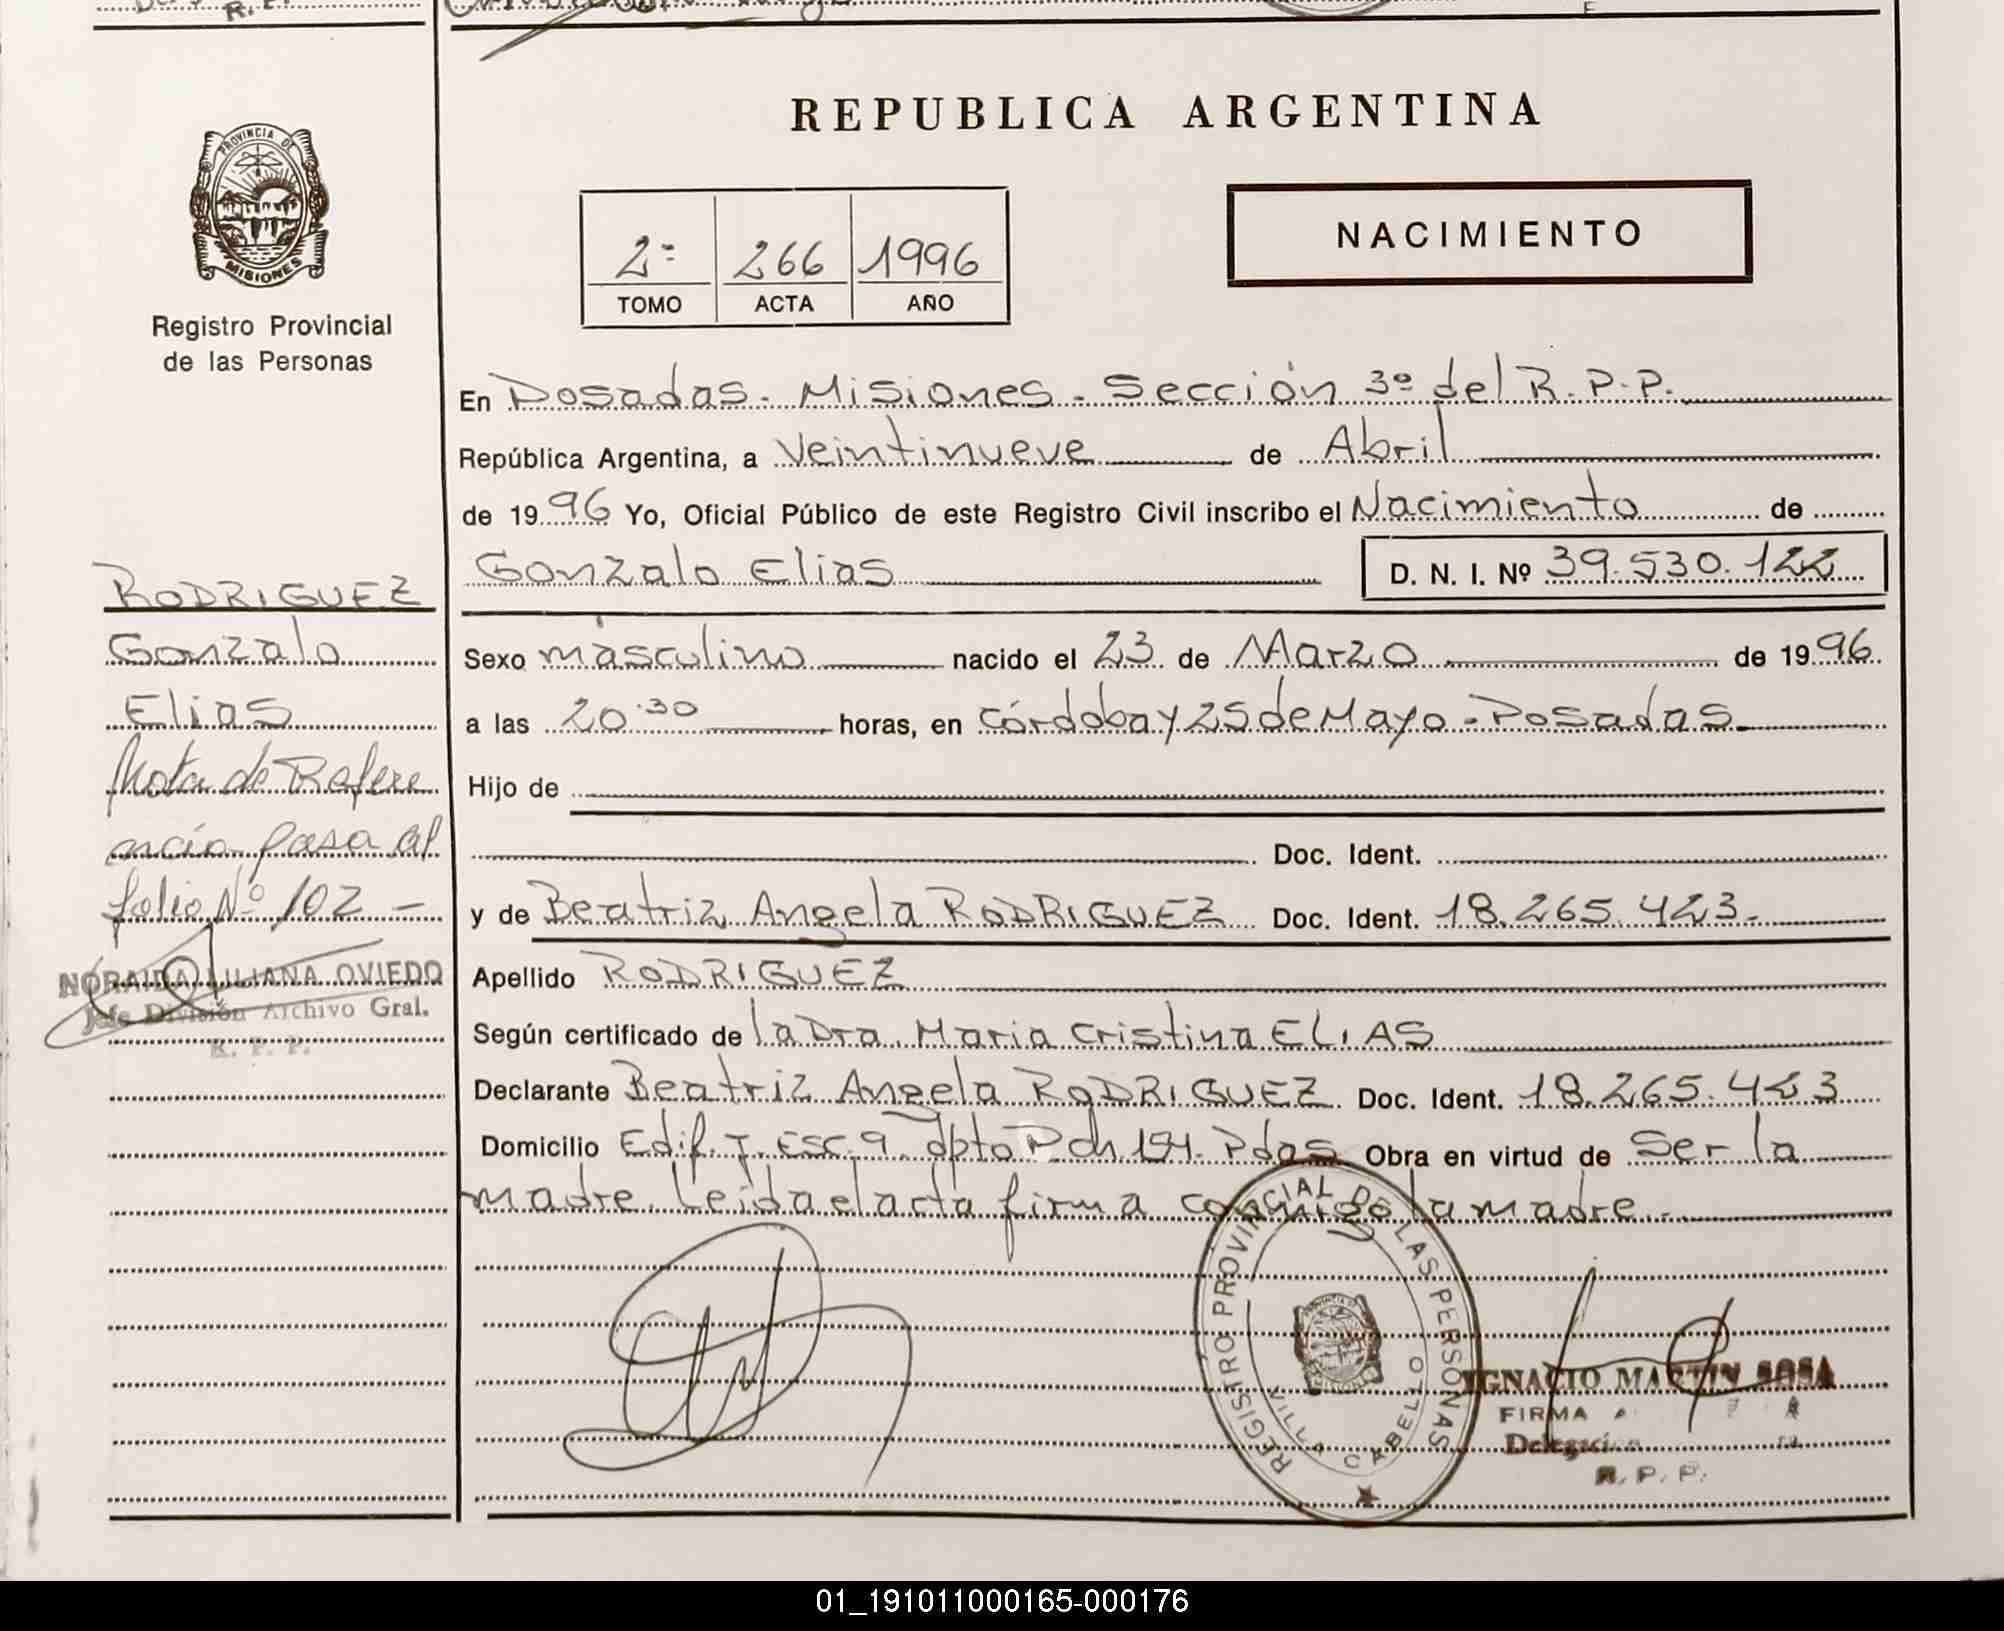 R. P.
REPUBLICA ARGENTINA
PROVINCIA DE
MISIONES
Registro Provincial
de las Personas
2º 266 1996
TOMO ACTA AÑO
NACIMIENTO
En Posadas - Misiones - Sección 3º del R.P.P.
República Argentina, a Veintinueve de Abril
de 1996 Yo, Oficial Público de este Registro Civil inscribo el Nacimiento de
Gonzalo Elias D. N. I. Nº 39.530.122
RODRIGUEZ
Gonzalo
Elias
Nota de Refere
encia pasa al
folio Nº 102 -
NORAIDA LILIANA OVIEDO
Jefe División Archivo Gral.
R. P. P.
Sexo masculino nacido el 23 de Marzo de 1996
a las 20.30 horas, en Córdoba y 25 de Mayo - Posadas
Hijo de
Doc. Ident.
y de Beatriz Angela RODRIGUEZ Doc. Ident. 18.265.423.-
Apellido RODRIGUEZ
Según certificado de la Dra. Maria Cristina ELIAS
Declarante Beatriz Angela RODRIGUEZ Doc. Ident. 18.265.423
Domicilio Edif. J. Esc. 9. dpto P. ch 194. Pdas Obra en virtud de Ser la
madre. Leida el acta firma conmigo la madre.-
REGISTRO PROVINCIAL DE LAS PERSONAS
VILLA CABELLO
IGNACIO MARTIN SOSA
FIRMA
R. P. P.
01_191011000165-000176